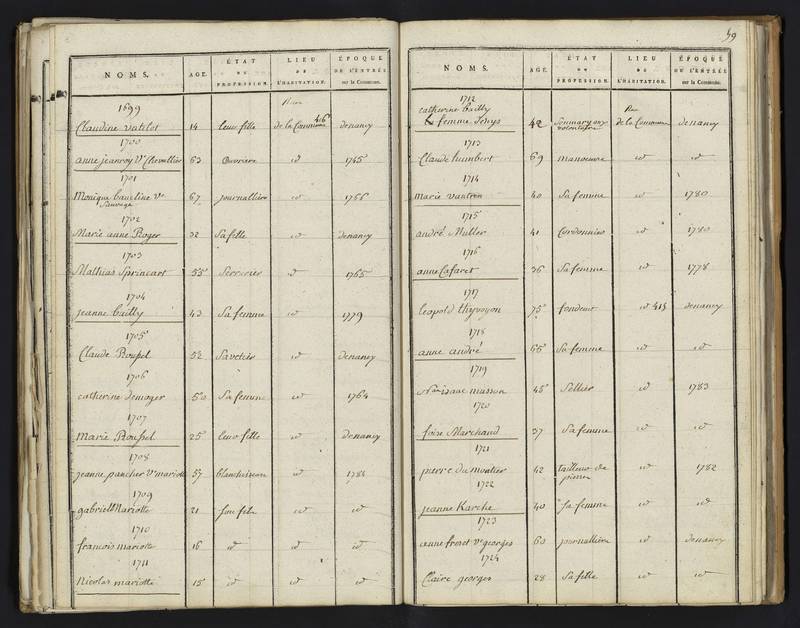 NOMS. AGE. ÉTAT OU PROFESSION. LIEU DE L'HABITATION. ÉPOQUE DE L'ENTRÉE sur la Commune.
1699 Rue
Claudine vatelot 14 leur fille de la Commune 416 de nancy
1700
anne jeanroy Ve Chevallier 63 Ouvriere id 1745
1701
Monique Baueline Ve 67 journalliere id 1766
Sauvage
1702
Marie anne Royer 32 Sa fille id de nancy
1703
Mathias Sprincart 55 Serrurier id 1765
1704
jeanne bailly 43 Sa femme id 1779
1705
Claude Roussel 52 Savetier id de nancy
1706
catherine demoyer 50 Sa femme id 1764
1707
Marie Roussel 25 leur fille id de nancy
1708
jeanne pancher Ve mariotte 57 blanchisseuse id 1788
1709
gabriel Mariotte 21 Son fils id id
1710
francois mariotte 16 id id id
1711
Nicolas mariotte 15 id id id
59
NOMS. AGE. ÉTAT OU PROFESSION. LIEU DE L'HABITATION. ÉPOQUE DE L'ENTRÉE sur la Commune.
1712
catherine bailly Rue
femme Denys 42 volontaire de la Commune de nancy
1713
Claude humbert 69 manoeuvre id id
1714
Marie vautrin 40 Sa femme id 1780
1715
andré Muller 41 Cordonnier id 1780
1716
anne Cafaret 36 Sa femme id 1778
1717
leopold thyvoyon 75 fondeur id 415 de nancy
1718
anne andré 65 Sa femme id id
1719
Nas isaac masson 45 Sellier id 1783
1720
foise Marchand 37 Sa femme id id
1721
pierre du moutier 42 tailleur de id 1782
pierre
1722
jeanne Karche 40 Sa femme id id
1723
anne froset Ve georges 60 journalliere id de nancy
1724
Claire georges 28 Sa fille id id